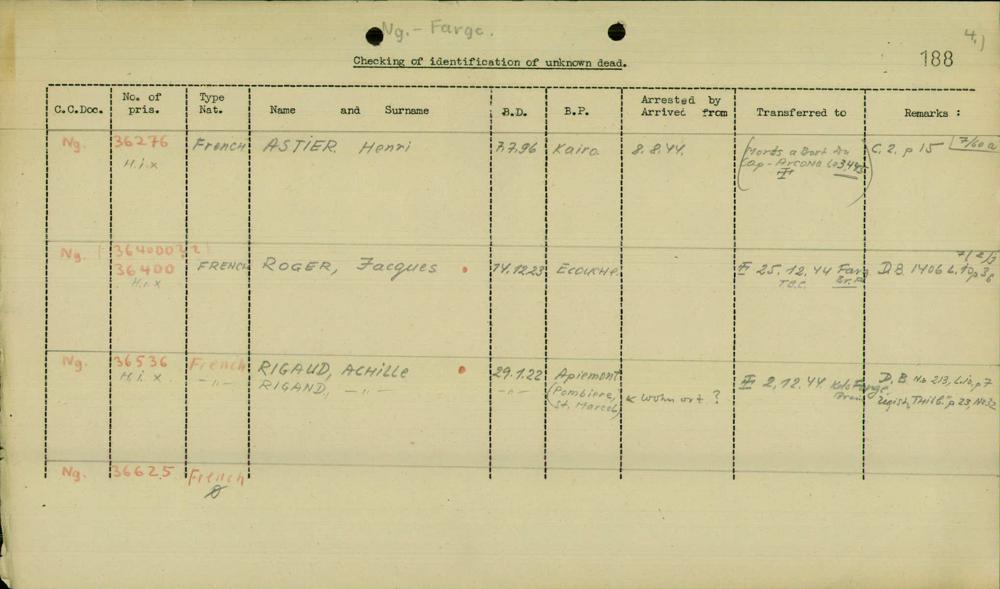 Ng. - Farge.
4.)
188
Checking of identification of unknown dead.
C.C.Doc. No. of pris. Type Nat. Name and Surname B.D. B.P. Arrested by Arrived from Transferred to Remarks :
Ng. 36276 French ASTIER Henri 7.7.96 Kairo 8.8.44. C. 2. p 15 7/60 a
H.i.x a Bort
Cap-Arcona
Ng. 36400
36400 FRENCH ROGER, Jacques 14.12.23 25.12.44 D.B. 1406
H.i.x T.C.C.
Ng. 36536 French RIGAUD, ACHille 29.1.22 Apiemont 2.12.44 Kdo Farge D.B. No 213, p 7
H.i.x -"- RIGAND, -"- -"- (Pombiere, St. Marcel) ← Wohnort ? p 23, No 32
Ng. 36625 French